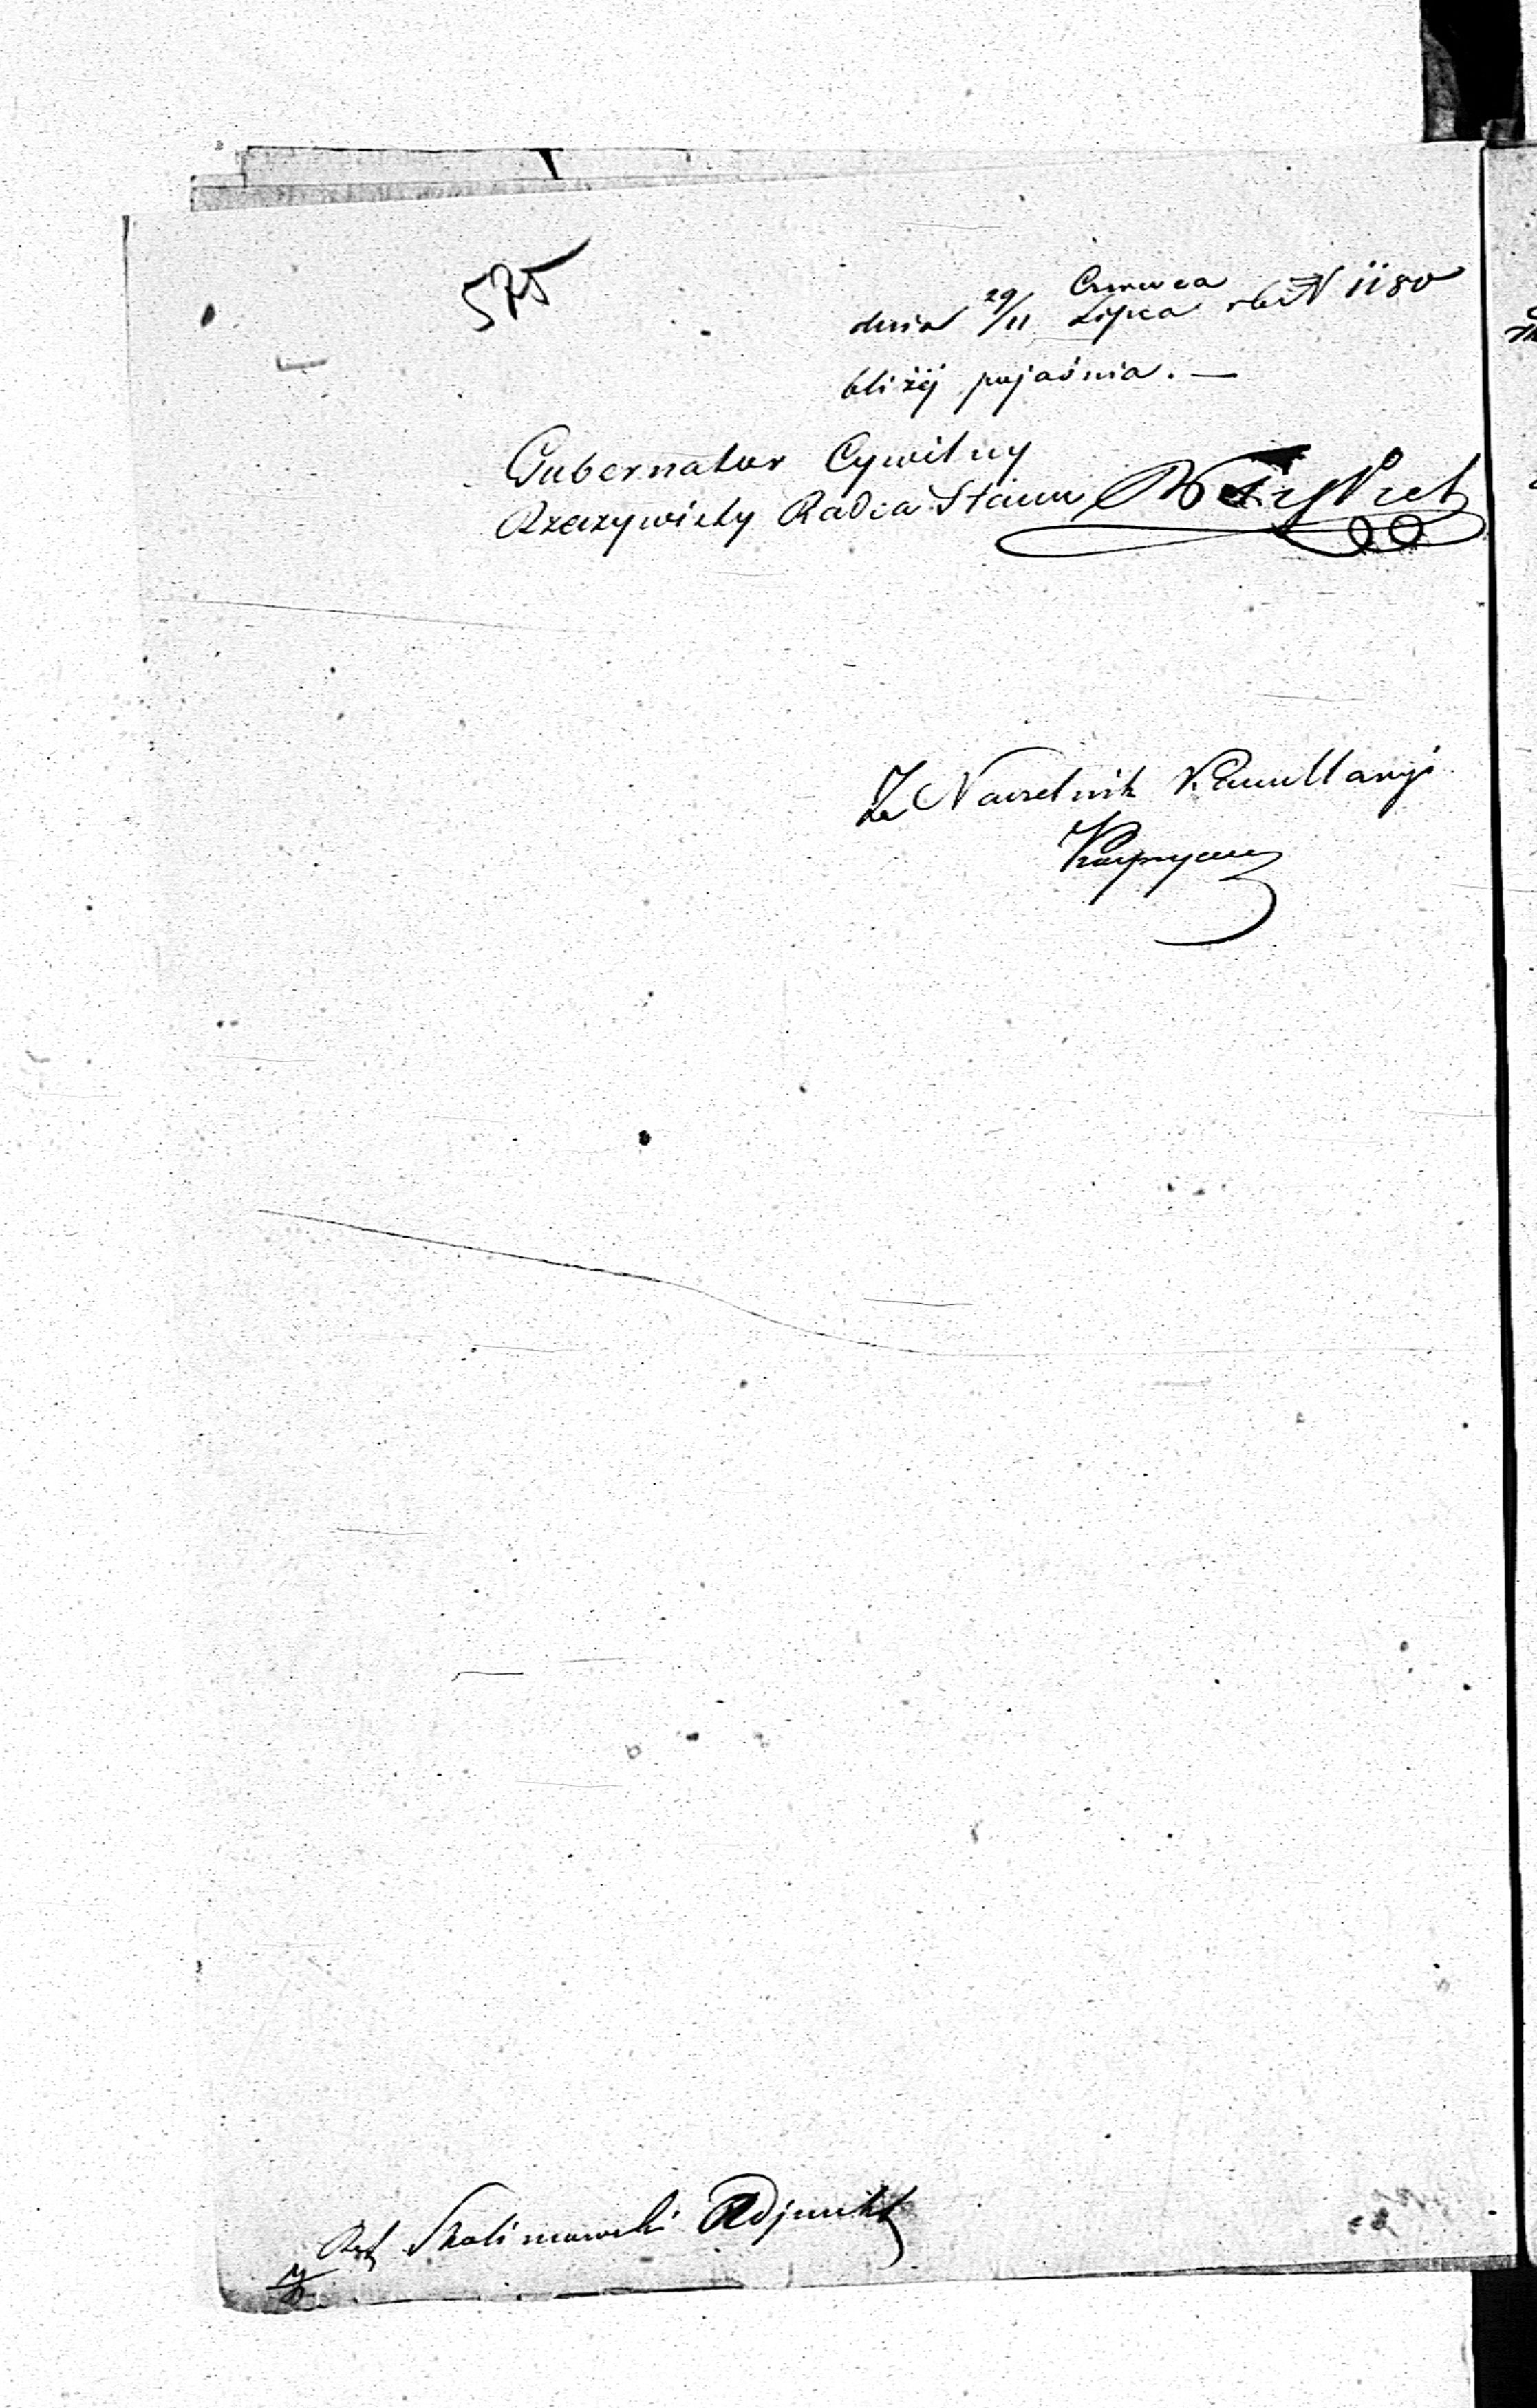 575
dnia 29/11 Czerwca Lipca rb N 1180
bliżej pojaśnia. —
Gubernator Cywilny
Rzeczywisty Radca Stanu
Za Naczelnik Kancellaryi
Skalimowski Adjunkt